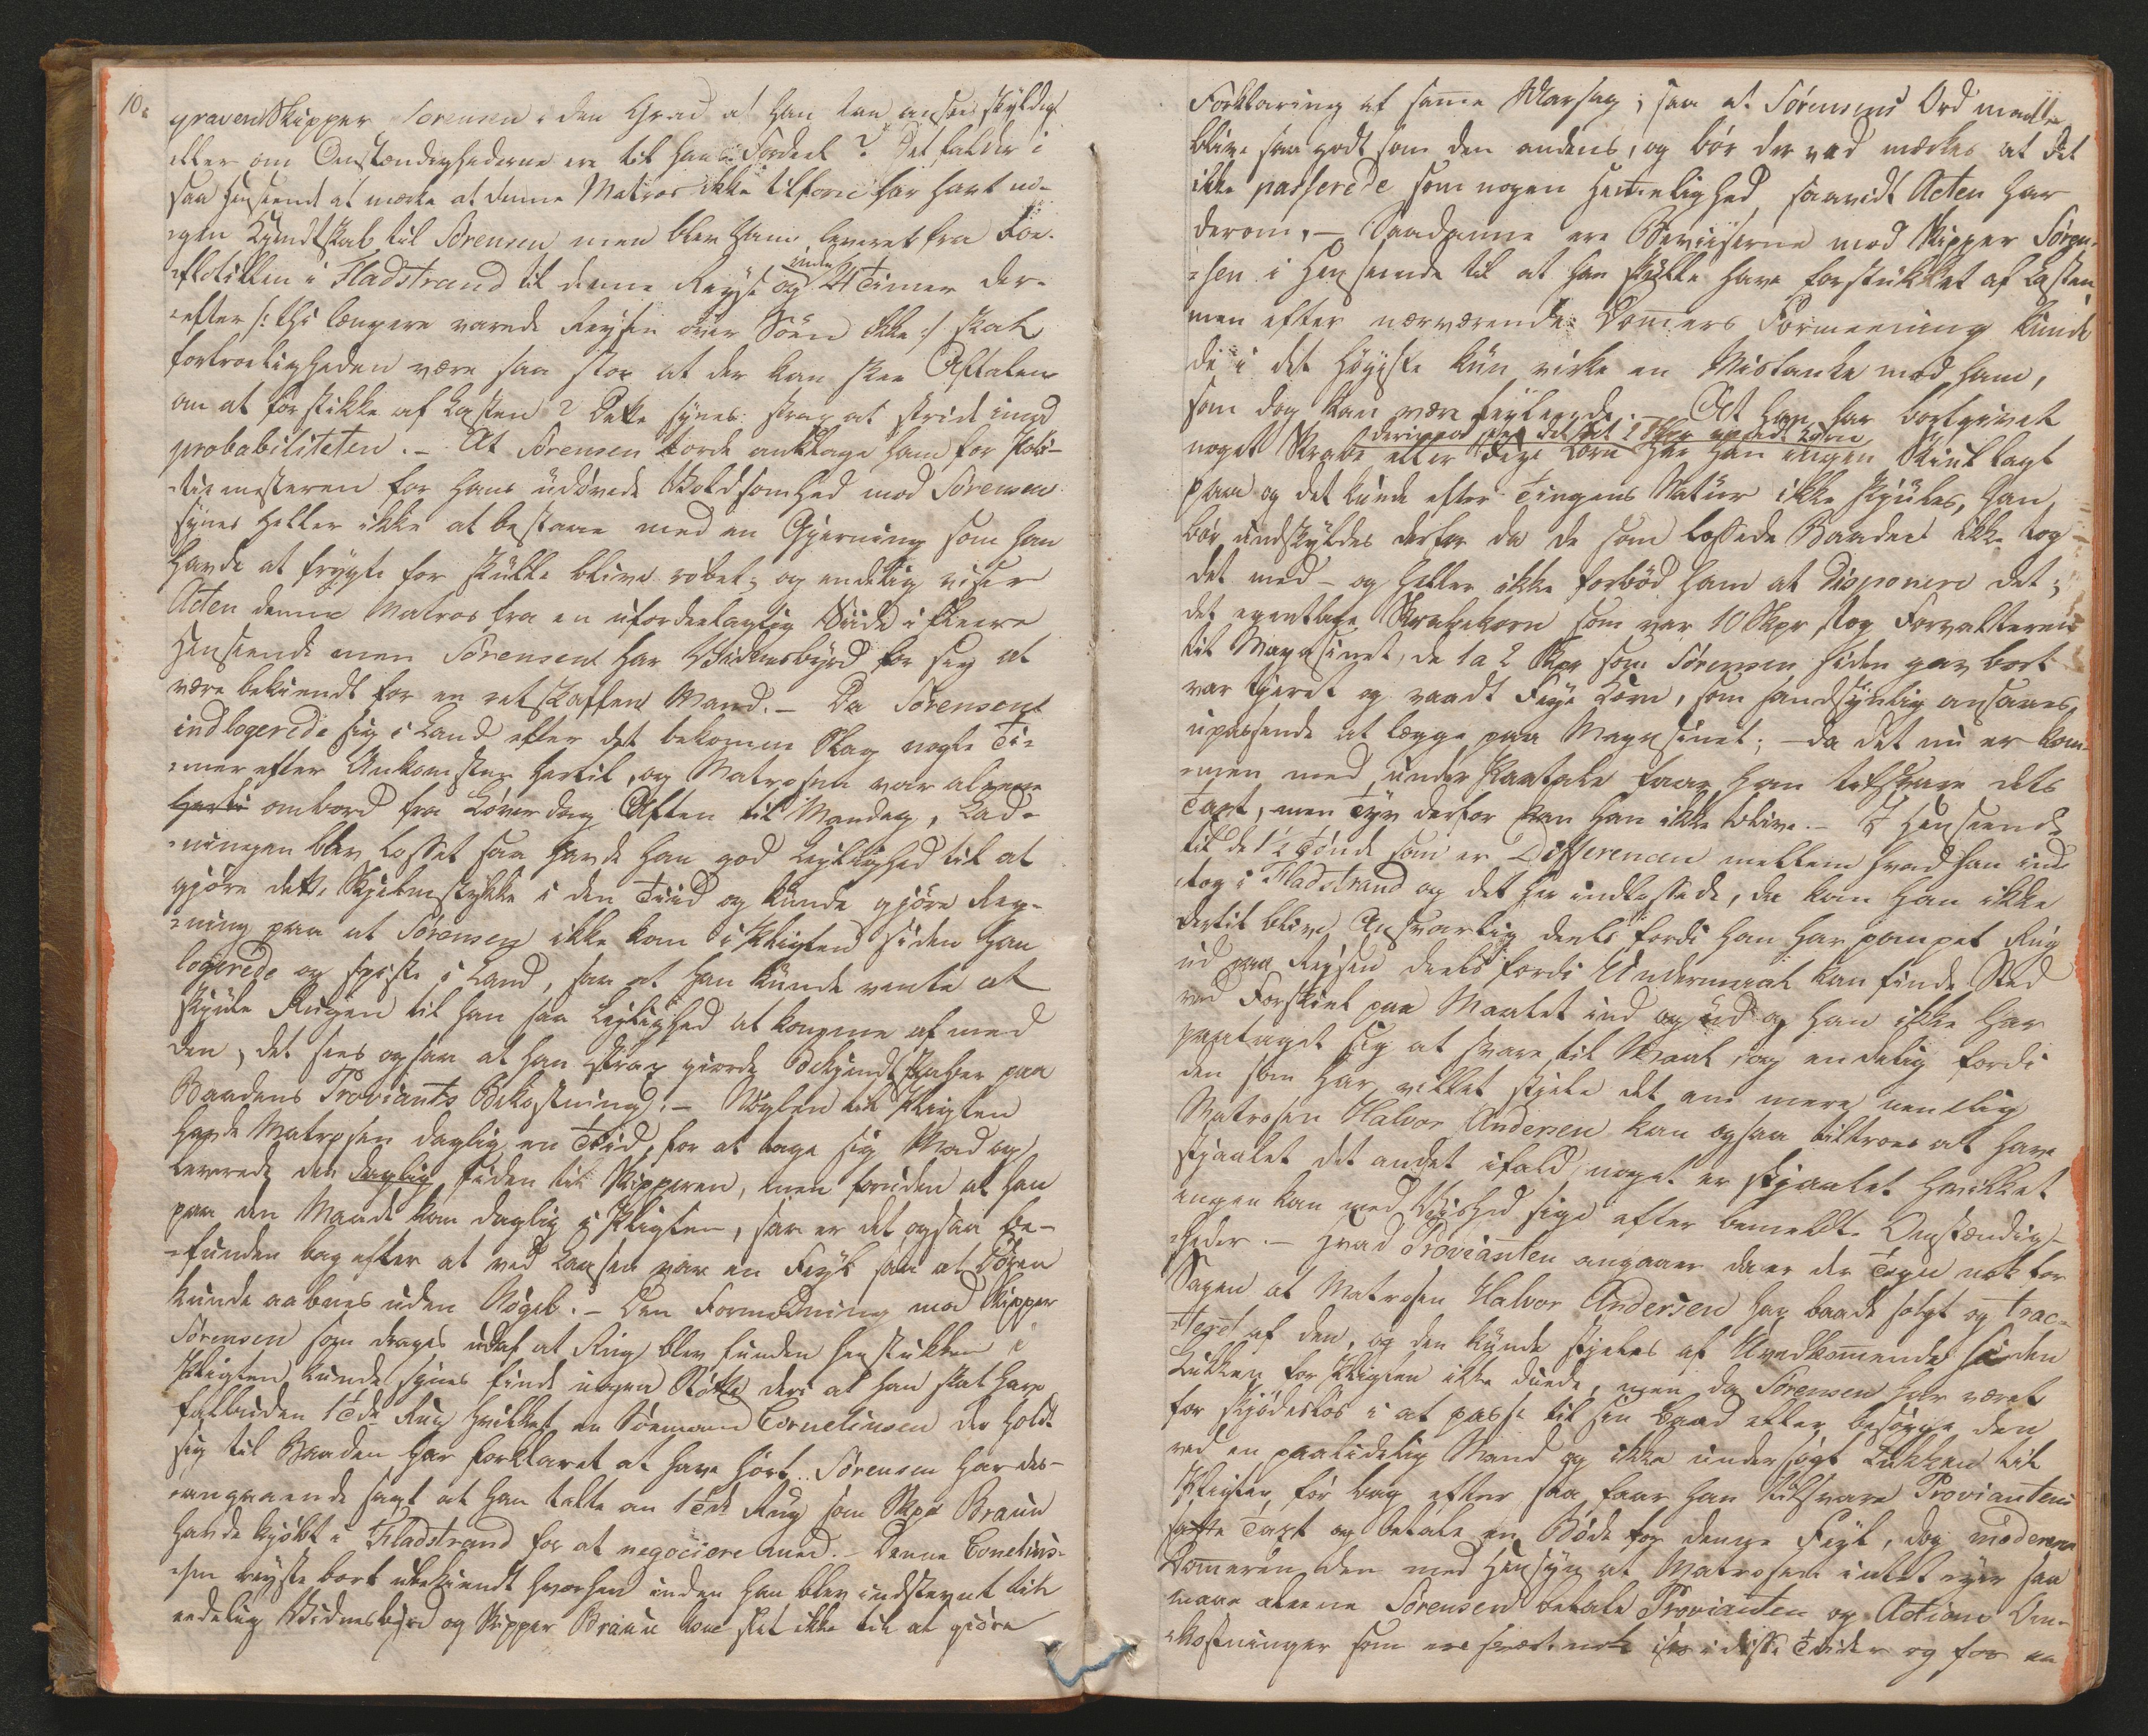 10.
graven Skipper Sorensen i den Grad at han kan ansees skyldig
eller om Omstændighederne ere til hans Fordeel? Det falder i
saa Henseende at mærke at denne Matros ikke tilforn har havt no-
gen Kyndskab til Sørensen men blev ham leveret fra Roe-
flotillen i Fladstrand til denne Reyse og inden 24 Timer der-
efter /: thi længere varede Reysen over Söen ikke :/ skal
fortroeligheden være saa stor at der kan skee Aftalen
om at forstikke af Lasten? Dette synes strax at stride imod
probabiliteten. - At Sørensen torde anklage ham for Poli-
tiemesteren for hans udøvede Voldsomhed mod Sørensen
synes heller ikke at bestaae med en Gjerning som han
havde at frygte for skulle blive robet; og endelig viser
Acten denne Matros fra en ufordeelagtig Siide i fleere
Henseende men Sørensen har Vidnesbyrd for sig at
være bekiendt for en retskaffen Mand. - Da Sørensen
indlogerede sig i Land efter det bekomne Slag nogle Ti-
mer efter Ankomsten hertil, og Matrosen var aleene
ombord fra Løverdag Aften til Mandag, Lad-
ningen blev losset saa havde han god Leylighed til at
gjøre dette Skjelmstykke i den Tiid og kunde gjöre Reg-
ning paa at Sørensen ikke kom i Pligten siden han
logerede og spiste i Land, saa at han kunde vente at
skjule Rugen til han saa Leylighed at komme af med
den, det sees ogsaa at han strax giorde Bekjendtskaber paa
Baadens Proviants Bekostning. - Nøglen til Pligten
havde Matrosen daglig en Tiid, for at tage sig Mad og
leverede den daglig siden til Skipperen, men foruden at han
paa den Maade kom daglig i Pligten, saa er det ogsaa be-
funden bag efter at ved Laasen var en Feyl saa at Døren
kunde aabnes uden Nøgel. - Den Formodning mod Skipper
Sørensen som drages udaf at Rug blev funden henstukken i
Pligten kunde synes finde nogen Støtte deri at han skal have
falbuden 1 Tde Rug hvilket en Söemand Cornelinsen der holdt
sig til Baaden har forklaret at have hört. Sørensen har des-
angaaende sagt at han talte om 1 Tde Rug som Skpr Braün
havde kjøbt i Fladstrand for at negociere med. - Denne Cornelins-
sen reyste bort ubekiendt hvorhen inden han blev indstevnt til
eedelig Vidnesbyrd og Skipper Braun kom slet ikke til at giöre
Forklaring af samme Aarsag, saa at Sørensens Ord maatte
blive saa godt som den andens, og bör der ved mærkes at det
ikke passerede som nogen Hemelighed, saavidt Acten har
derom. - Saadanne ere Beviiserne mod Skipper Søren-
sen i Henseende til at han skulle have forstukket af Lasten,
men efter nærværende Domers Formeening kunde
de i det höyeste kun virke en Mistanke mod ham,
som dog kan være feylende. - At han har bortgivet
noget Skrabe eller Feye Korn har han ingen Skiul lagt
paa og det kunde efter Tingens Natur ikke skjules, han
bör undskyldes derfor da de som lossede Baaden ikke tog
det med - og heller ikke forböd ham at disponere det;
det egentlige Skrabekorn som var 10 Skpr tog Forvalteren
til Magasinet, de 1 a 2 Skpr som Sørensen siden gav bort
var tjæret og vaadt Feye Korn, som sandsynlig ansaaes
upassende at lægge paa Magasinet; - da det nu er kom-
men med under Paatale faar han tilsvare dets
Taxt, men Tyv derfor kan han ikke blive. - I Henseende
til de 1½ Tønde som er Differencen mellem hvad han ind-
tog i Fladstrand og det her indlossede, da kan han ikke
dertil blive Ansvarlig deels fordi han har pompet Rug
ud paa Reysen deels fordi Undermaal kan finde Sted
ved Forskiel paa Maalet ind og ud og han ikke har
paataget sig at svare til Maal, og endelig fordi
den som har villet stjele det ene mere nemlig
Matrosen Halvor Andersen kan ogsaa tiltroes at have
stjaalet det andet ifald noget er stjaalet hvilket
ingen kan med Vished sige efter bemeldte Omstændig-
heder. - Hvad Provianten angaaer da er der Tegn nok for
Sagen at Matrosen Halvor Andersen har baade solgt og trac-
teret af den, og den kunde stjeles af Uvedkommende siden
Lukken for Pligten ikke duede, men da Sørensen har været
for skjødeslös i at passe til sin Baad eller besörge den
ved en paalidelig Mand og ikke undersögt Lukken til
Pligten för bag efter saa faar han tilsvare Proviantens
Taxt og betale en Bøde for denne Feyl, dog moderere
Domeren den med Hensyn at Matrosen intet eyer saa
maae aleene Sørensen betale Provianten og Actions Om-
kostninger som ere svære nok i disse Tiider og for en